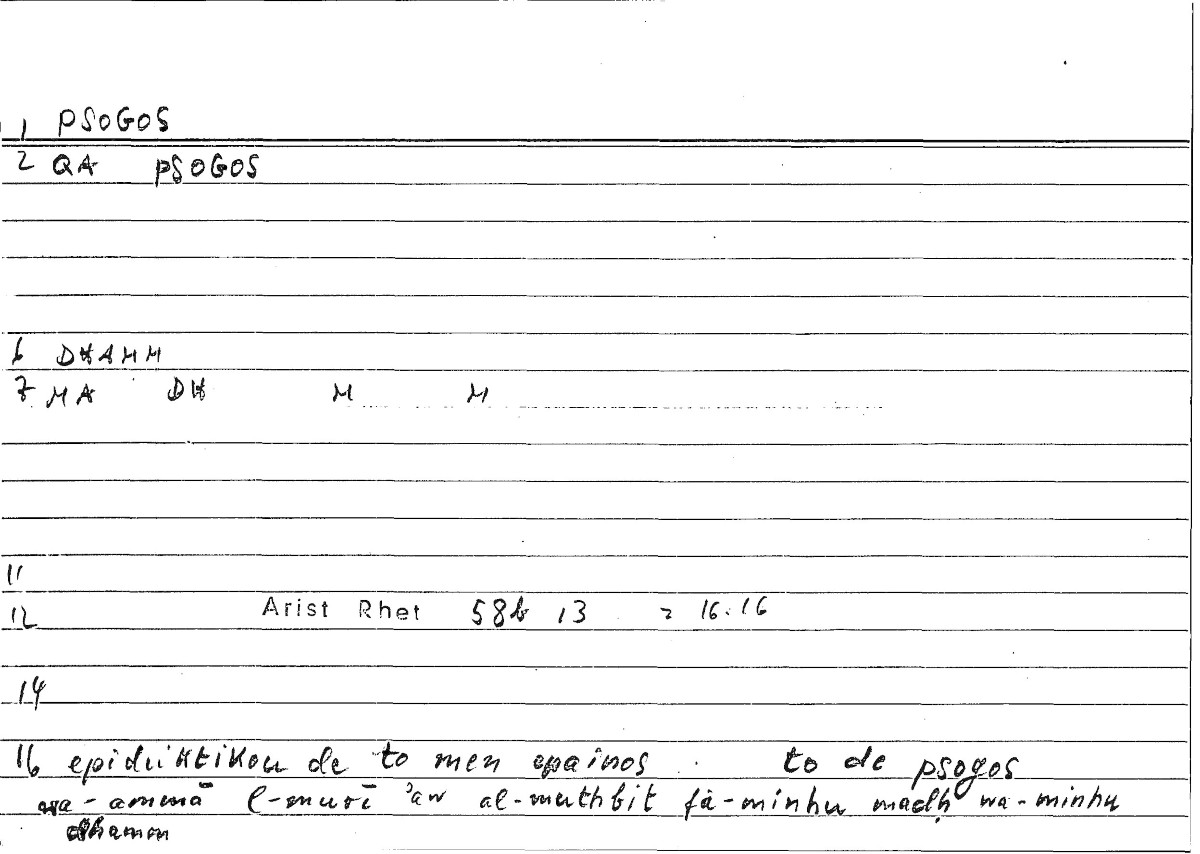 1 PSOGOS
2 QA PSOGOS
6 DHAMM
7 MA DH M M
11
12 Arist Rhet 58b 13 = 16.16
14
16 epideiktikou de to men epainos . to de psogos
wa-ammā l-murī ʾaw al-muthbit fa-minhu madḥ wa-minhu
dhamm